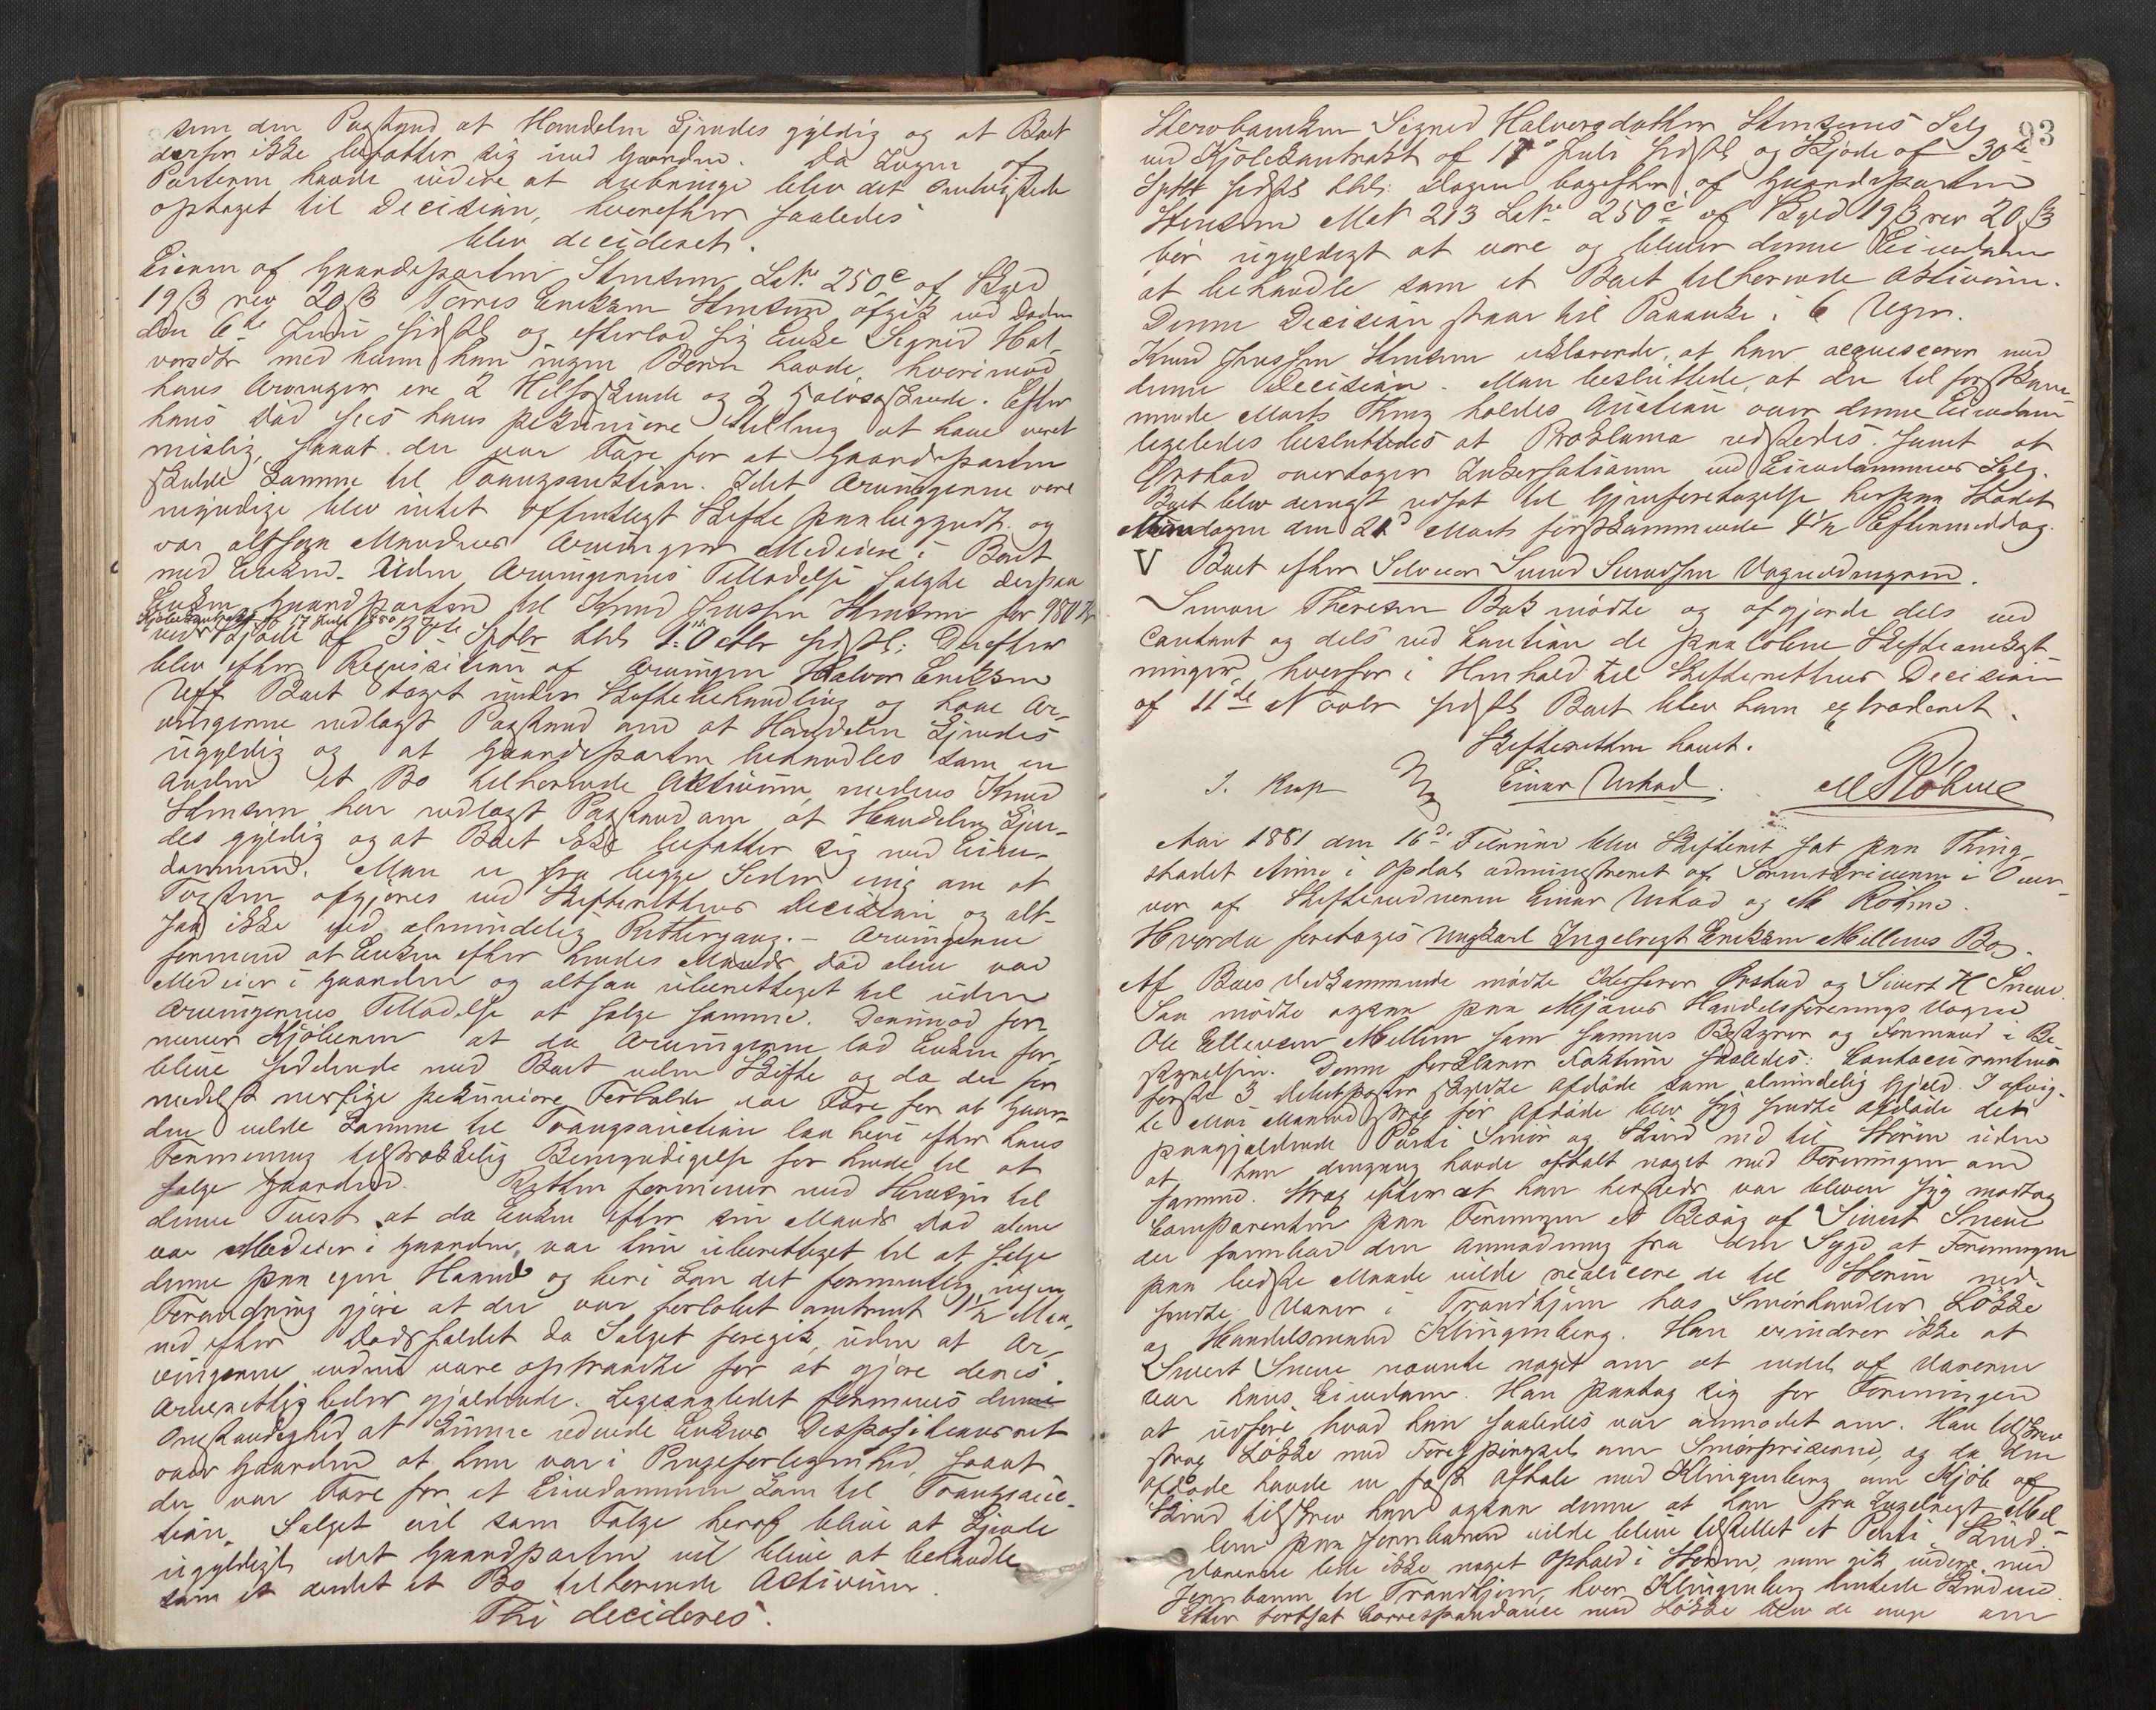 som den Paastand at Handelen kjendes gyldig og at Boet
derfor ikke befatter sig med Gaarden. Da Ingen af
Parterne havde videre at anbringe blev det omtvistede
optaget til Decision, hvorefter saaledes
blev decideret.
Eieren af Gaardsparten Stensem Løbe No 250c af Skyld
19 β rev 20 β Torris Eriksen Stensem afgik ved Døden
den 6te Juni sidstl og efterlod sig Enke Sigrid Hal-
vorsdtr med hvem han ingen Børn havde, hvorimod
hans Arvinger ere 2 Helsøskende og 2 Halvsøskende. Efter
hans Død sees hans pekuniære Stilling at have været
mislig, saaat der var Fare for at Gaardsparten
skulde komme til Tvangsauktion. Idet Arvingerne vare
myndige blev intet offentligt Skifte paabegyndt og
var altsaa Mandens Arvinger Medeiere i Boet
med Enken. Uden Arvingernes Tilladelse solgte derpaa
Enken Gaardparten til Knud Jonssen Stensem for 980 Kr
Kjøbekontrakt af 17 Juli 1880
ved Skjøde af 30te Septbr thl: 1: Octbr sidstl: Derefter
blev efter Requisition af Arvingen Halvor Eriksen
Uff Boet taget under Skiftebehandling og have Ar-
vingerne nedlagt Paastand om at Handelen kjendes
ugyldig og at Gaardsparten behandles som en
anden et Bo tilhørende Aktivum, medens Knud
Stensem har nedlagt Paastand om at Handelen kjen-
des gyldig og at Boet ikke befatter sig med Eien-
dommen. Man er fra begge Sider enig om at
Tvisten afgjøres ved Skifterettens Decision og alt-
saa ikke ved almindelig Rettergang. – Arvingerne
formene at Enken efter hendes Mands Død alene var
Medeier i Gaarden og altsaa uberettiget til uden
Arvingernes Tilladelse at sælge samme. Derimod for-
mener Kjøberen at da Arvingerne lod Enken for-
blive siddende med Boet uden Skifte og da der for-
medelst nærlige pekuniære Forholde var Fare for at Gaar-
den vilde komme til Tvangsauction laa heri efter hans
Formening tilstrækkelig Bemyndigelse for hende til at
sælge Gaarden. Retten formener med Hensyn til
denne Tvist, at da Enken efter sin Mands Død alene
var Medeier i Gaarden, var hun uberettiget til at sælge
denne paa egen Haand og heri kan det formentlig ingen
Forandring gjøre at der var forløbet omtrent 1½ Maa-
ned efter Dødsfaldet da Salget foregik, uden at Ar-
vingerne endnu vare optraadte for at gjøre deres
Arverettigheder gjældende. Ligesaalidet formenes denne
Omstændighed at kunne udvide Enkens Dispositionsret
over Gaarden at hun var i Pengeforlegenhed, saaat
der var Fare for at Eiendommen kom til Tvangsauc-
tion. Salget vil som Følge heraf blive at kjende
ugyldigt idet Gaardparten vil blive at behandle
som et andet et Bo tilhørende Activum.
Thi decideres:
93
Sterboenken Sigrid Halvorsdatter Stensems Salg
ved Kjøbekontrakt af 17de Juli sidstl og Skjøde af 30te
Septbr sidstl thl: Dagen bagefter, af Gaardsparten
Stensem Mat 213 Løbe 250c af Skyld 19 β rev 20 β
bør ugyldigt at være og bliver denne Eiendom
at behandle som et Boet tilhørende Aktivum.
Denne Decision staar til Paaanke i 6 Uger.
Knud Jonssen Stensem erklærede, at han acquiescerer ved
denne Decision. Man besluttede, at der til førstkom-
mende Marts Thing holdes Auction over denne Eiendom
ligeledes besluttedes at Proklama udstedes. Samt at
Ørstad overtager Inkassationen ved Eiendommens Salg.
Boet blev dernæst udsat til Gjenforetagelse herpaa Stedet
Mandagen den 21d Marts førstkommende 4½ Eftermiddag.
V Boet efter Selveier Svend Svendsen Vognildengen.
Simon Thoresen Bak mødte og afgjorde dels ved
Contant og dels ved Caution de paaløbne Skifteomkost-
ninger, hvorfor i Henhold til Skifterettens Decision
af 11te Novbr sidstl Boet blev ham extraderet.
Skifteretten hævet.
Einar Urstad. M Røhme
Aar 1881 den 16d Februar blev Skifteret sat paa Thing-
stedet Aune i Opdal administreret af Sorenskriveren i Over-
vær af Skiftevidnerne Einar Urstad og M Röhme.
Hvorda foretoges Ungkarl Ingebrigt Eriksen Mellems Bo.
Af Boes Vedkommende mødte Kasserer Ørstad og Sivert H Sneve
Saa mødte ogsaa paa Mjøens Handelsforenings Vegne
Ole Ellevsen Mellem som sammes Bestyrer og Formand i Be-
styrelsen. Denne forklarer Faktum saaledes: Contocourantens
første 3 Debetposter skyldte Afdøde som almindelig Gjæld. I afvig-
te Mai Maaned strax før Afdøde blev syg sendte Afdøde det
paagjældende Parti Smør og Skind ned til Støren uden
at han dengang havde aftalt noget med Foreningen om
samme. Strax efter at han hersteds var bleven syg modtog
Comparenten paa Foreningen et Besøg af Sivert Sneve
der frembar den Anmodning fra den Syge at Foreningen
paa bedste Maade vilde realisere de til Støren ned-
sendte Varer i Trondhjem hos Smørhandler Løkke
og Handelsmand Klingenberg. Han erindrer ikke at
Sivert Sneve nævnte noget om at endel af Varerne
var hans Eiendom. Han paatog sig for Foreningen
at udføre hvad han saaledes var anmodet om. Han tilskrev
strax Løkke med Forespørgsel om Smørpriserne, og da den
afdøde havde en fast Aftale med Klingenberg om Kjøb af
Skind tilskrev han ogsaa denne at han fra Ingebrigt Mel-
lem paa Jernbanen vilde blive tilstillet et Parti Skind.
Varerne lede ikke noget Ophold i Støren, men gik videre med
Jernbanen til Trondhjem, hvor Klingenberg hentede Skindene.
Efter fortsat Correspondance med Løkke blev de enige om